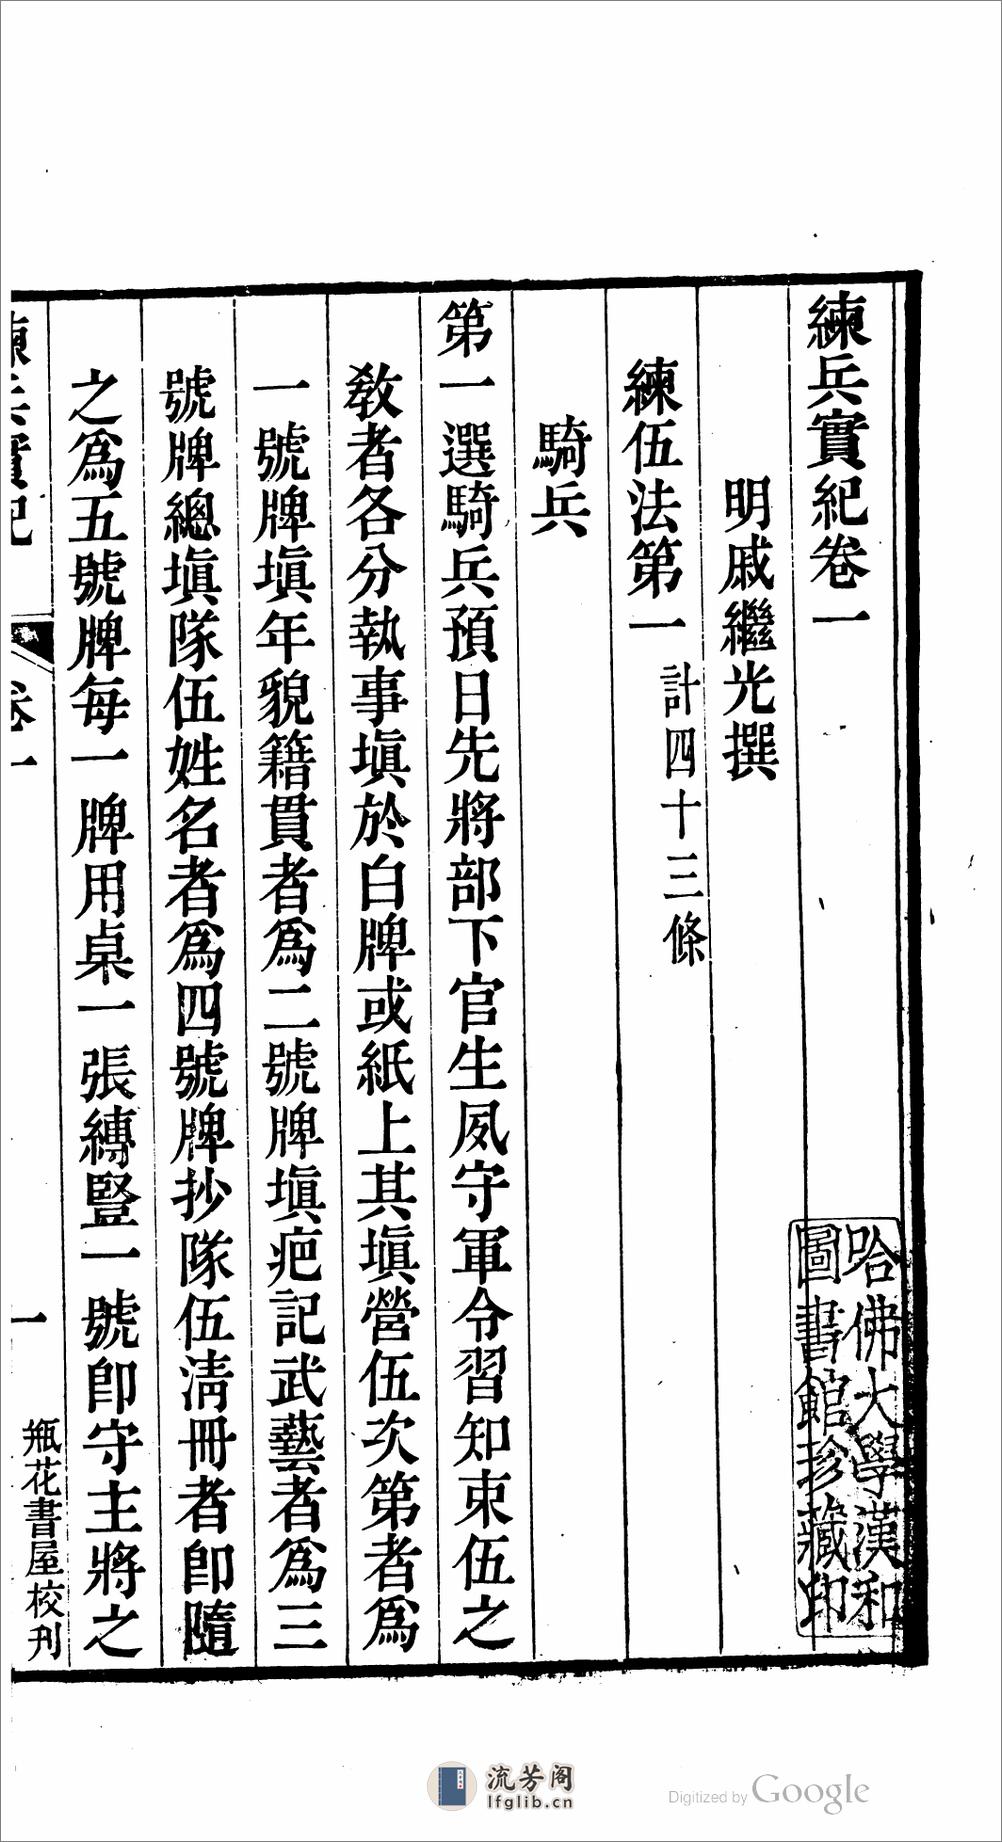 練兵實紀卷一
明戚繼光撰
練伍法第一 計四十三條
騎兵
第一選騎兵預日先將部下官生夙守軍令習知束伍之
教者各分執事塡於白牌或紙上其塡營伍次第者爲
一號牌塡年貌籍貫者爲二號牌塡疤記武藝者爲三
號牌總塡隊伍姓名者爲四號牌抄隊伍淸冊者卽隨
之爲五號牌每一牌用桌一張縛豎一號卽守主將之
練兵實紀 卷一 一 瓶花書屋校刋
哈佛大學漢和
圖書館珍藏印
流芳阁
lfglib.cn
Digitized by Google